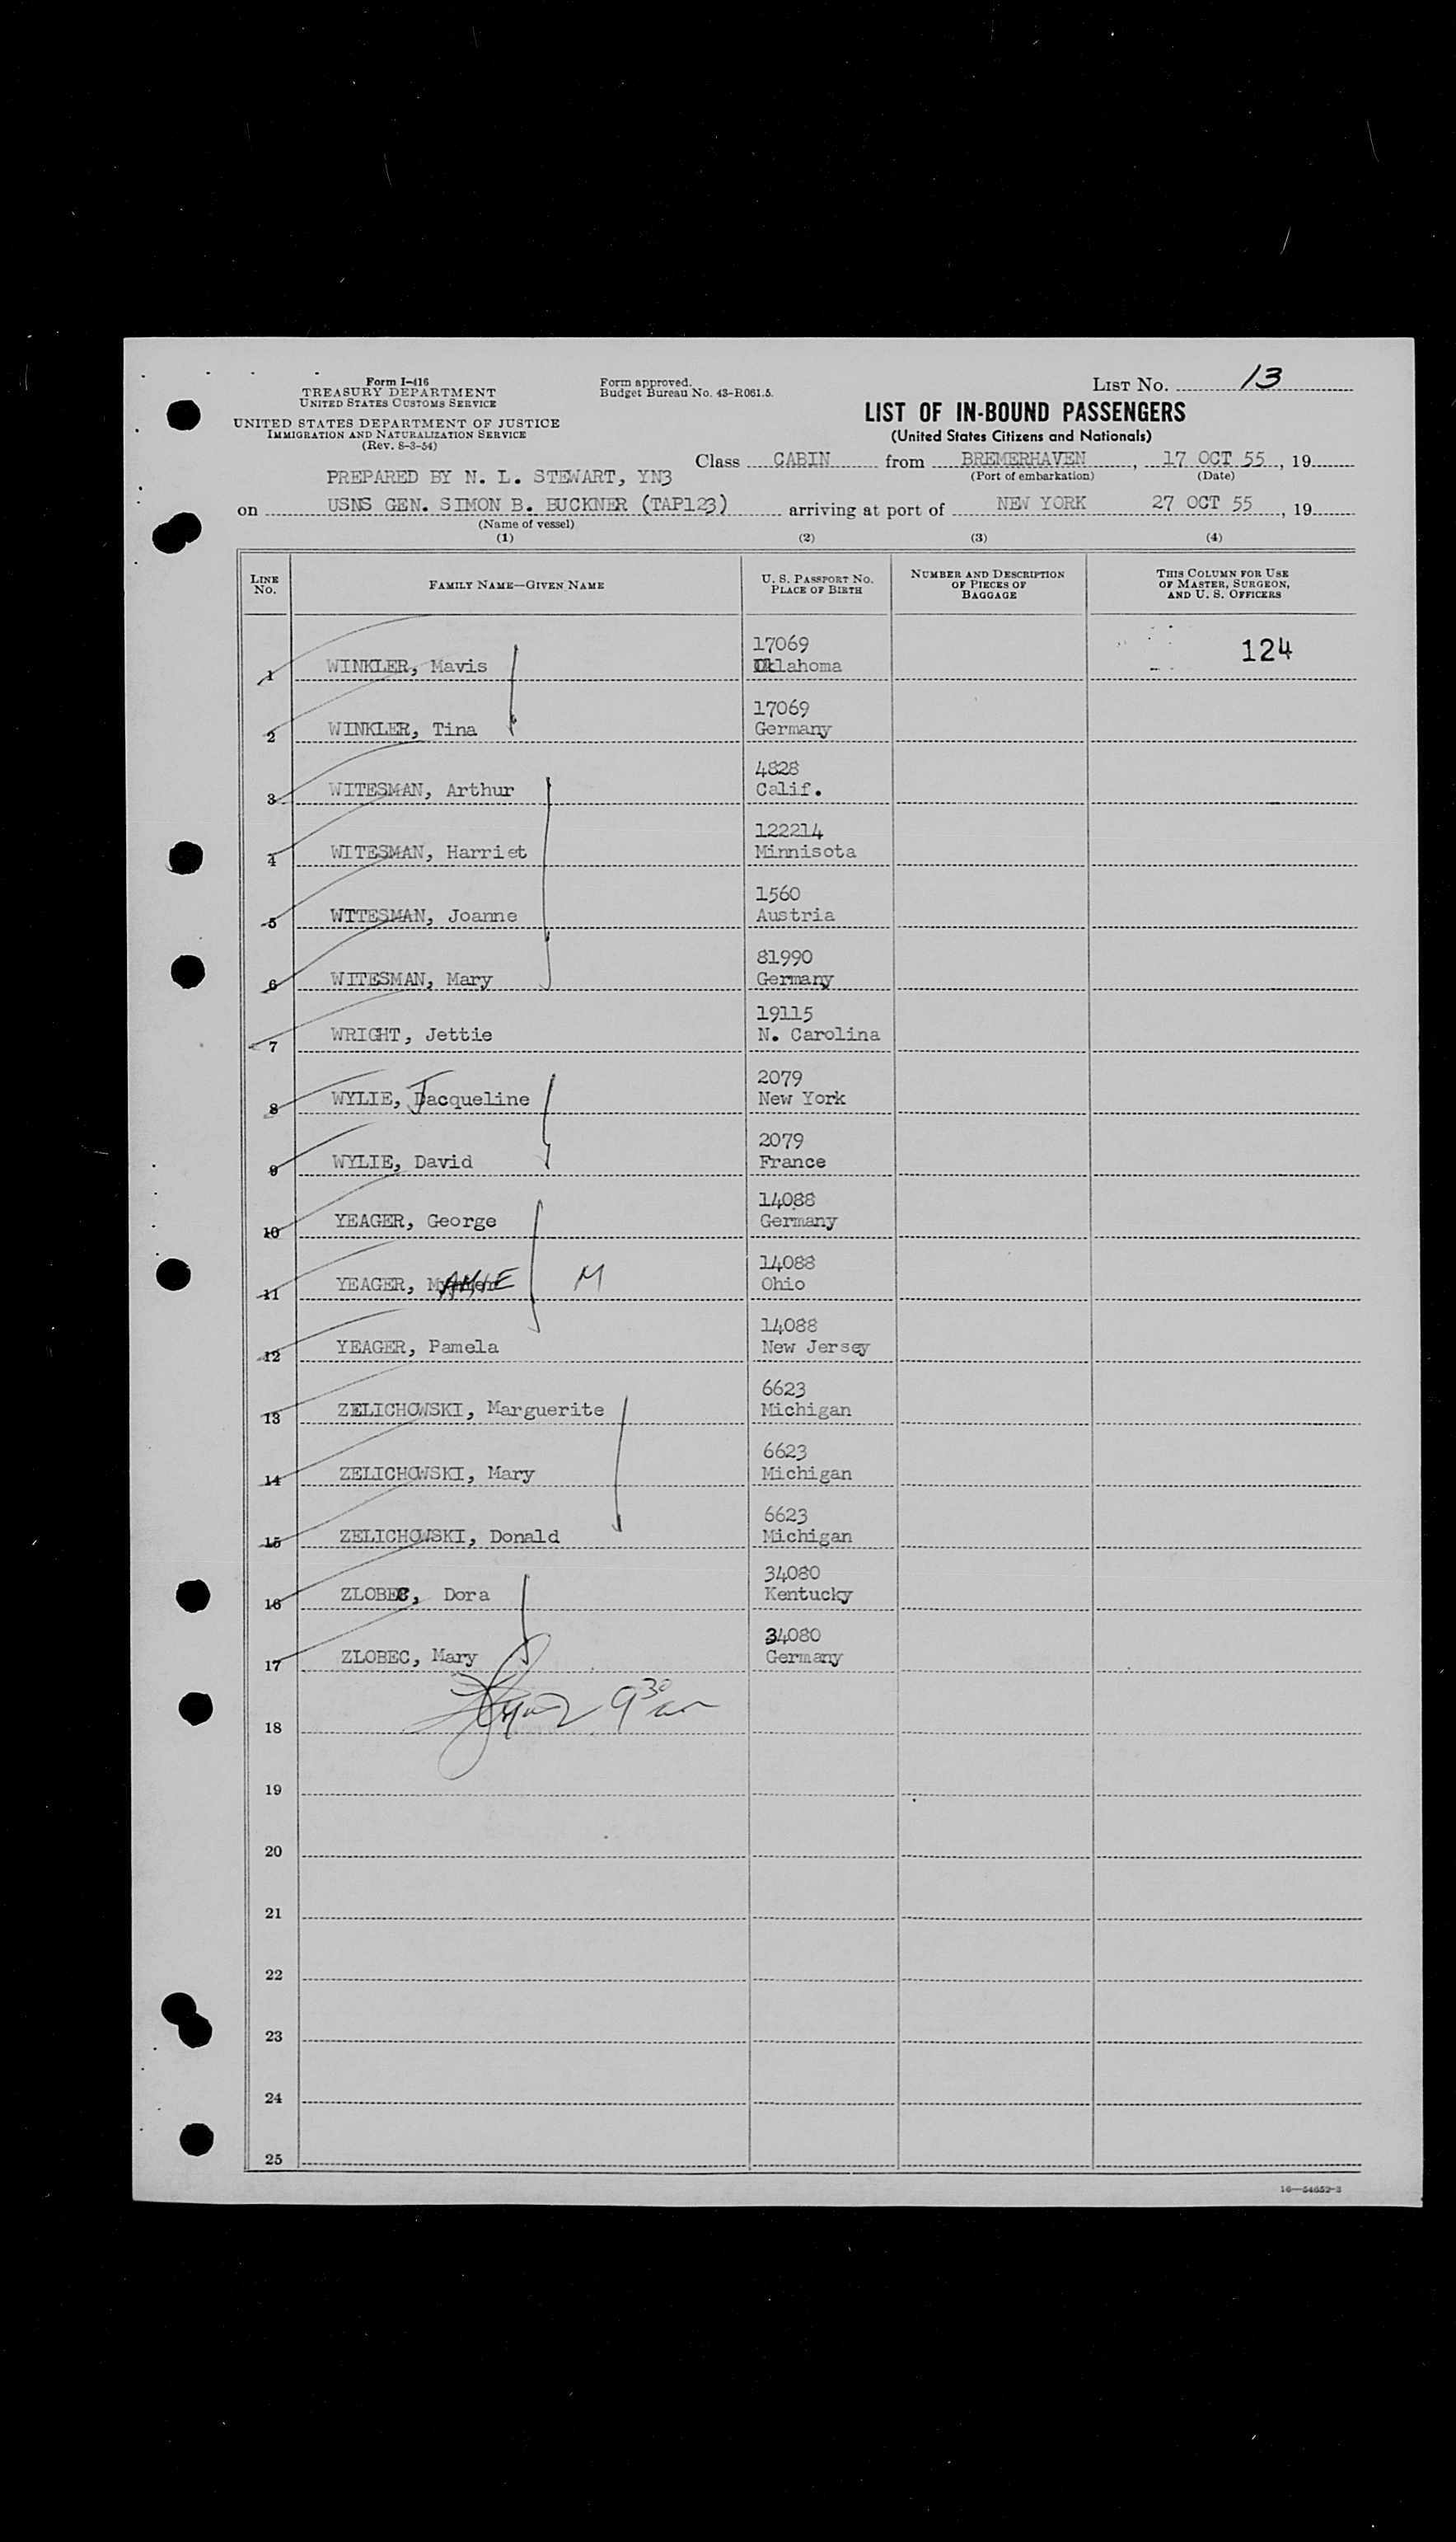 Form I-416
TREASURY DEPARTMENT
UNITED STATES CUSTOMS SERVICE
UNITED STATES DEPARTMENT OF JUSTICE
IMMIGRATION AND NATURALIZATION SERVICE
(Rev. 8-3-54)
Form approved.
Budget Bureau No. 43-R061.5.
LIST NO. 13
LIST OF IN-BOUND PASSENGERS
(United States Citizens and Nationals)
Class CABIN from BREMERHAVEN, 17 OCT 55, 19
(Port of embarkation) (Date)
PREPARED BY N. L. STEWART, YN3
on USNS GEN. SIMON B. BUCKNER (TAP123) arriving at port of NEW YORK 27 OCT 55, 19
(Name of vessel)
(1) (2) (3) (4)
LINE NO. FAMILY NAME—GIVEN NAME U. S. PASSPORT NO. PLACE OF BIRTH NUMBER AND DESCRIPTION OF PIECES OF BAGGAGE THIS COLUMN FOR USE OF MASTER, SURGEON, AND U. S. OFFICERS
17069 124
1 WINKLER, Mavis Oklahoma
17069
2 WINKLER, Tina Germany
4828
3 WITESMAN, Arthur Calif.
122214
4 WITESMAN, Harriet Minnisota
1560
5 WITESMAN, Joanne Austria
81990
6 WITESMAN, Mary Germany
19115
7 WRIGHT, Jettie N. Carolina
2079
8 WYLIE, Jacqueline New York
2079
9 WYLIE, David France
14088
10 YEAGER, George Germany
14088
11 YEAGER, M Ohio
14088
12 YEAGER, Pamela New Jersey
6623
13 ZELICHOWSKI, Marguerite Michigan
6623
14 ZELICHOWSKI, Mary Michigan
6623
15 ZELICHOWSKI, Donald Michigan
34080
16 ZLOBEC, Dora Kentucky
34080
17 ZLOBEC, Mary Germany
9 30 am
18
19
20
21
22
23
24
25
16—54652-3